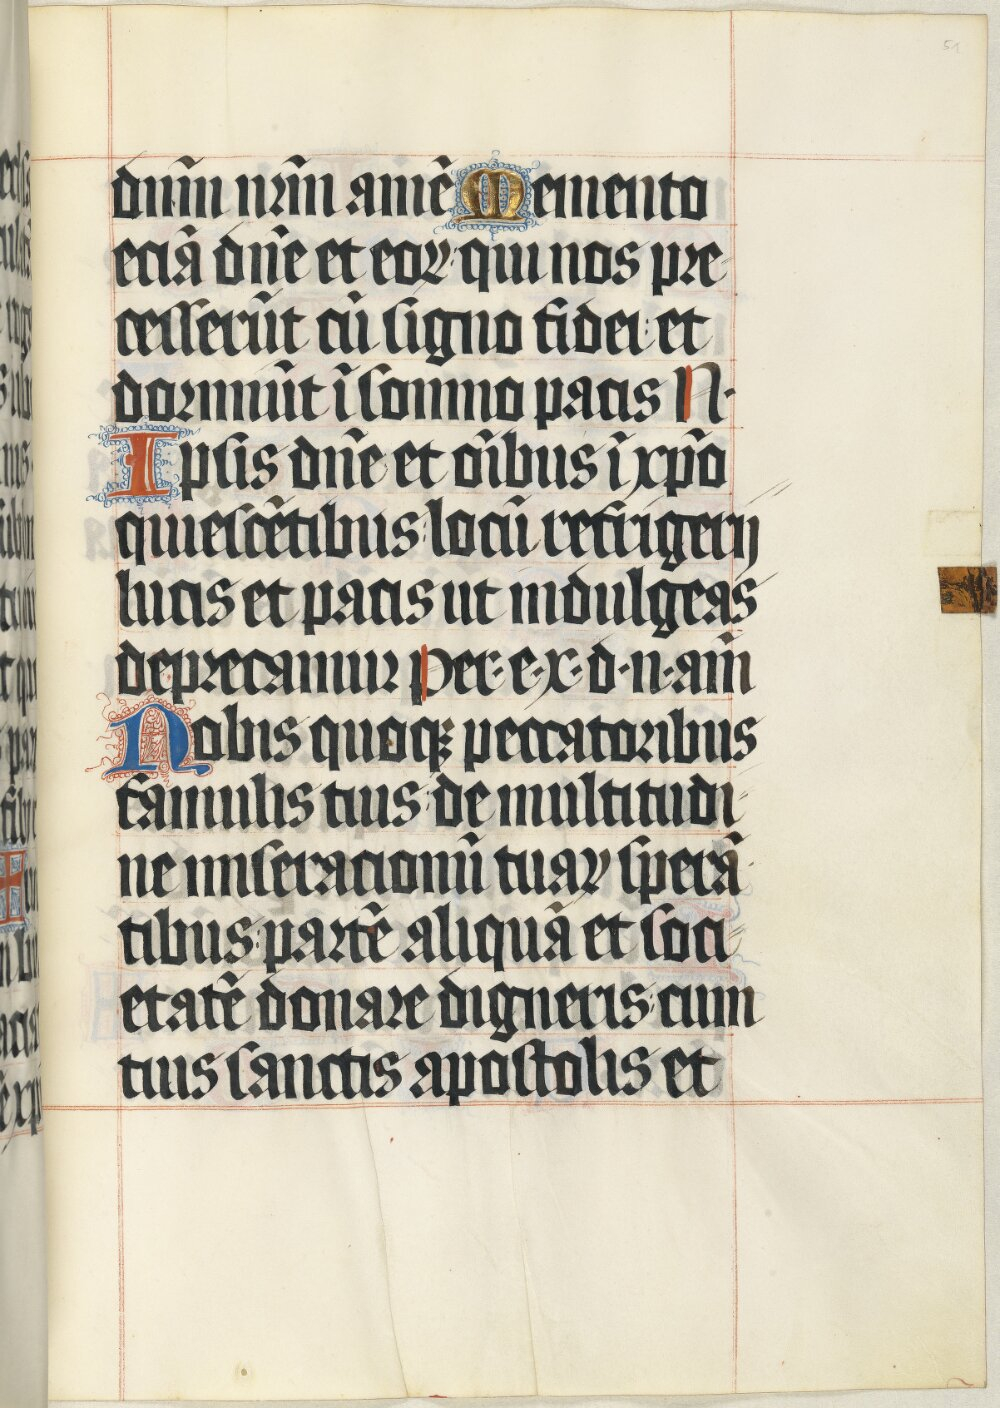 51
dnm̄ nrm̄ amē Memento
eciā dn̄e et eoꝝ qui nos pre
cesserūt cū signo fidei: et
dormiūt ī somno pacis N·
Ipsis dn̄e et oībus ī xp̄o
quiescētibus: locū refrigerij
lucis et pacis ut indulgeas
deprecamur Per·e·x·d·n·am̄
Nobis quoqꝫ peccatoribus
famulis tuis de multitudi
ne miseracionū tuaꝝ sperā
tibus: partē aliquā et soci
etatē donare digneris: cum
tuis sanctis apostolis et